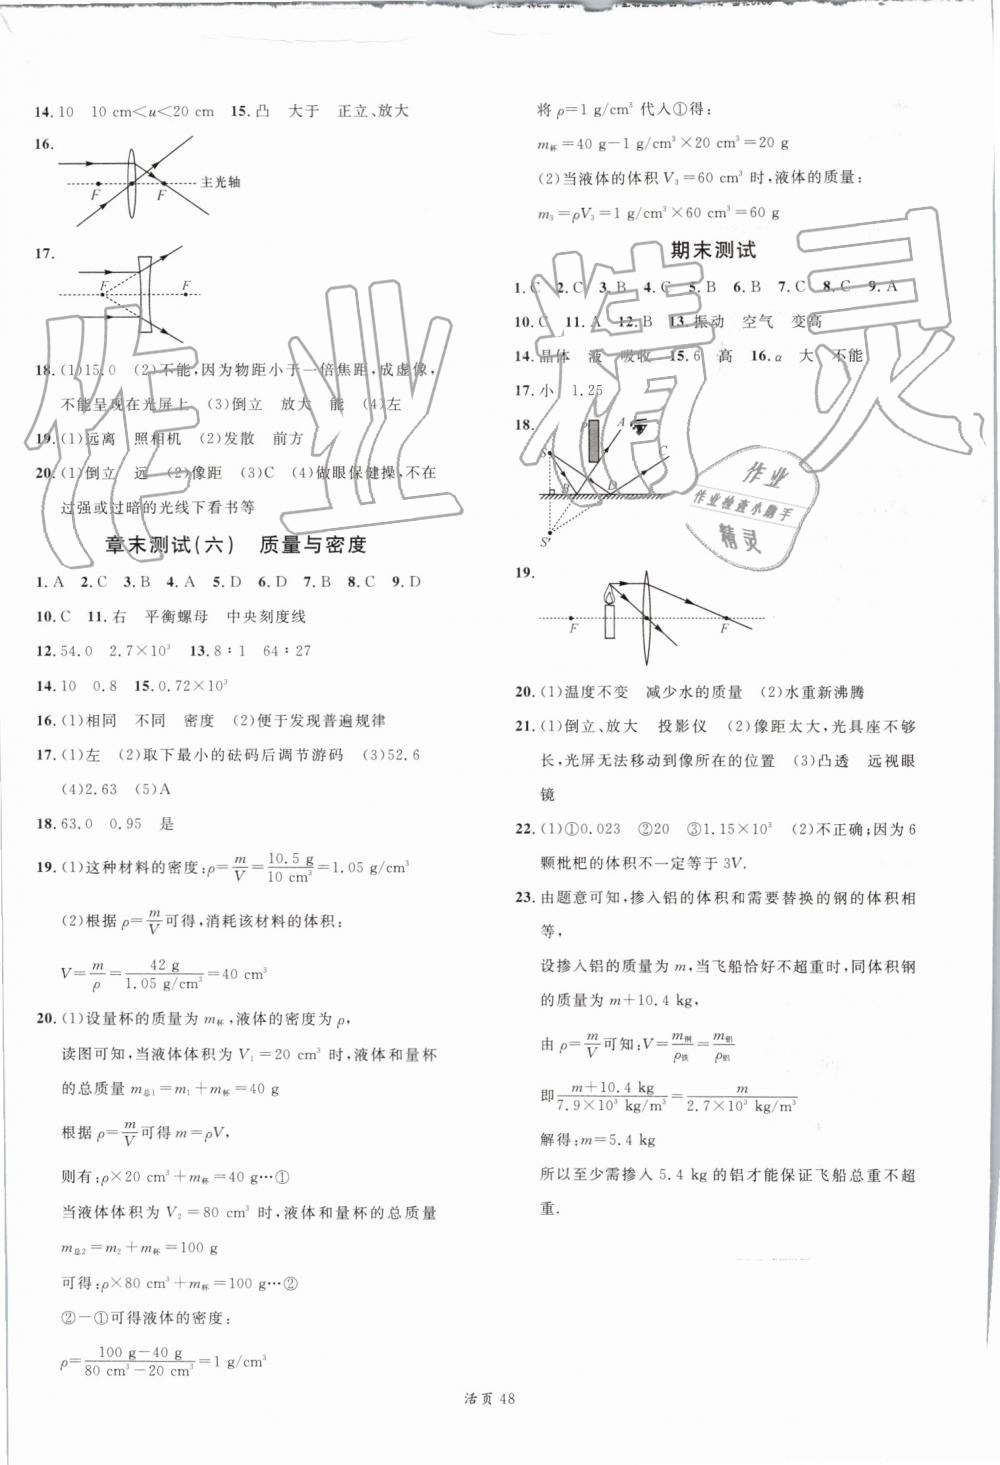 14. 10　10 cm＜u＜20 cm　15. 凸　大于　正立、放大
16.
主光轴
F　F
17.
F　F
18. (1)15.0　(2)不能,因为物距小于一倍焦距,成虚像,
不能呈现在光屏上　(3)倒立　放大　能　(4)左
19. (1)远离　照相机　(2)发散　前方
20. (1)倒立　远　(2)像距　(3)C　(4)做眼保健操,不在
过强或过暗的光线下看书等
章末测试(六)　质量与密度
1. A　2. C　3. B　4. A　5. D　6. D　7. B　8. C　9. D
10. C　11. 右　平衡螺母　中央刻度线
12. 54.0　2.7×10³　13. 8∶1　64∶27
14. 10　0.8　15. 0.72×10³
16. (1)相同　不同　密度　(2)便于发现普遍规律
17. (1)左　(2)取下最小的砝码后调节游码　(3)52.6
(4)2.63　(5)A
18. 63.0　0.95　是
19. (1)这种材料的密度:ρ=m/V=10.5 g/10 cm³=1.05 g/cm³
(2)根据 ρ=m/V可得,消耗该材料的体积:
V=m/ρ=42 g/1.05 g/cm³=40 cm³
20. (1)设量杯的质量为 m杯,液体的密度为 ρ,
读图可知,当液体体积为 V₁=20 cm³ 时,液体和量杯
的总质量 m总1=m₁+m杯=40 g
根据 ρ=m/V可得 m=ρV,
则有:ρ×20 cm³+m杯=40 g…①
当液体体积为 V₂=80 cm³ 时,液体和量杯的总质量
m总2=m₂+m杯=100 g
可得:ρ×80 cm³+m杯=100 g…②
②-①可得液体的密度:
ρ=100 g-40 g/80 cm³-20 cm³=1 g/cm³
将 ρ=1 g/cm³ 代入①得:
m杯=40 g-1 g/cm³×20 cm³=20 g
(2)当液体的体积 V₃=60 cm³ 时,液体的质量:
m₃=ρV₃=1 g/cm³×60 cm³=60 g
期末测试
1. C　2. C　3. B　4. C　5. B　6. B　7. C　8. C　9. A
10. C　11. A　12. B　13. 振动　空气　变高
14. 晶体　液　吸收　15. 6　高　16. α　大　不能
17. 小　1.25
18.
A　C
S
B　D
S′
19.
F　F
20. (1)温度不变　减少水的质量　(2)水重新沸腾
21. (1)倒立、放大　投影仪　(2)像距太大,光具座不够
长,光屏无法移动到像所在的位置　(3)凸透　远视眼
镜
22. (1)①0.023　②20　③1.15×10³　(2)不正确;因为 6
颗枇杷的体积不一定等于 3V.
23. 由题意可知,掺入铝的体积和需要替换的钢的体积相
等,
设掺入铝的质量为 m,当飞船恰好不超重时,同体积钢
的质量为 m+10.4 kg,
由 ρ=m/V可知:V=m钢/ρ铁=m铝/ρ铝
即m+10.4 kg/7.9×10³ kg/m³=m/2.7×10³ kg/m³
解得:m=5.4 kg
所以至少需掺入 5.4 kg 的铝才能保证飞船总重不超
重.
作业精灵
作业
作业检查小助手
精灵
活页 48